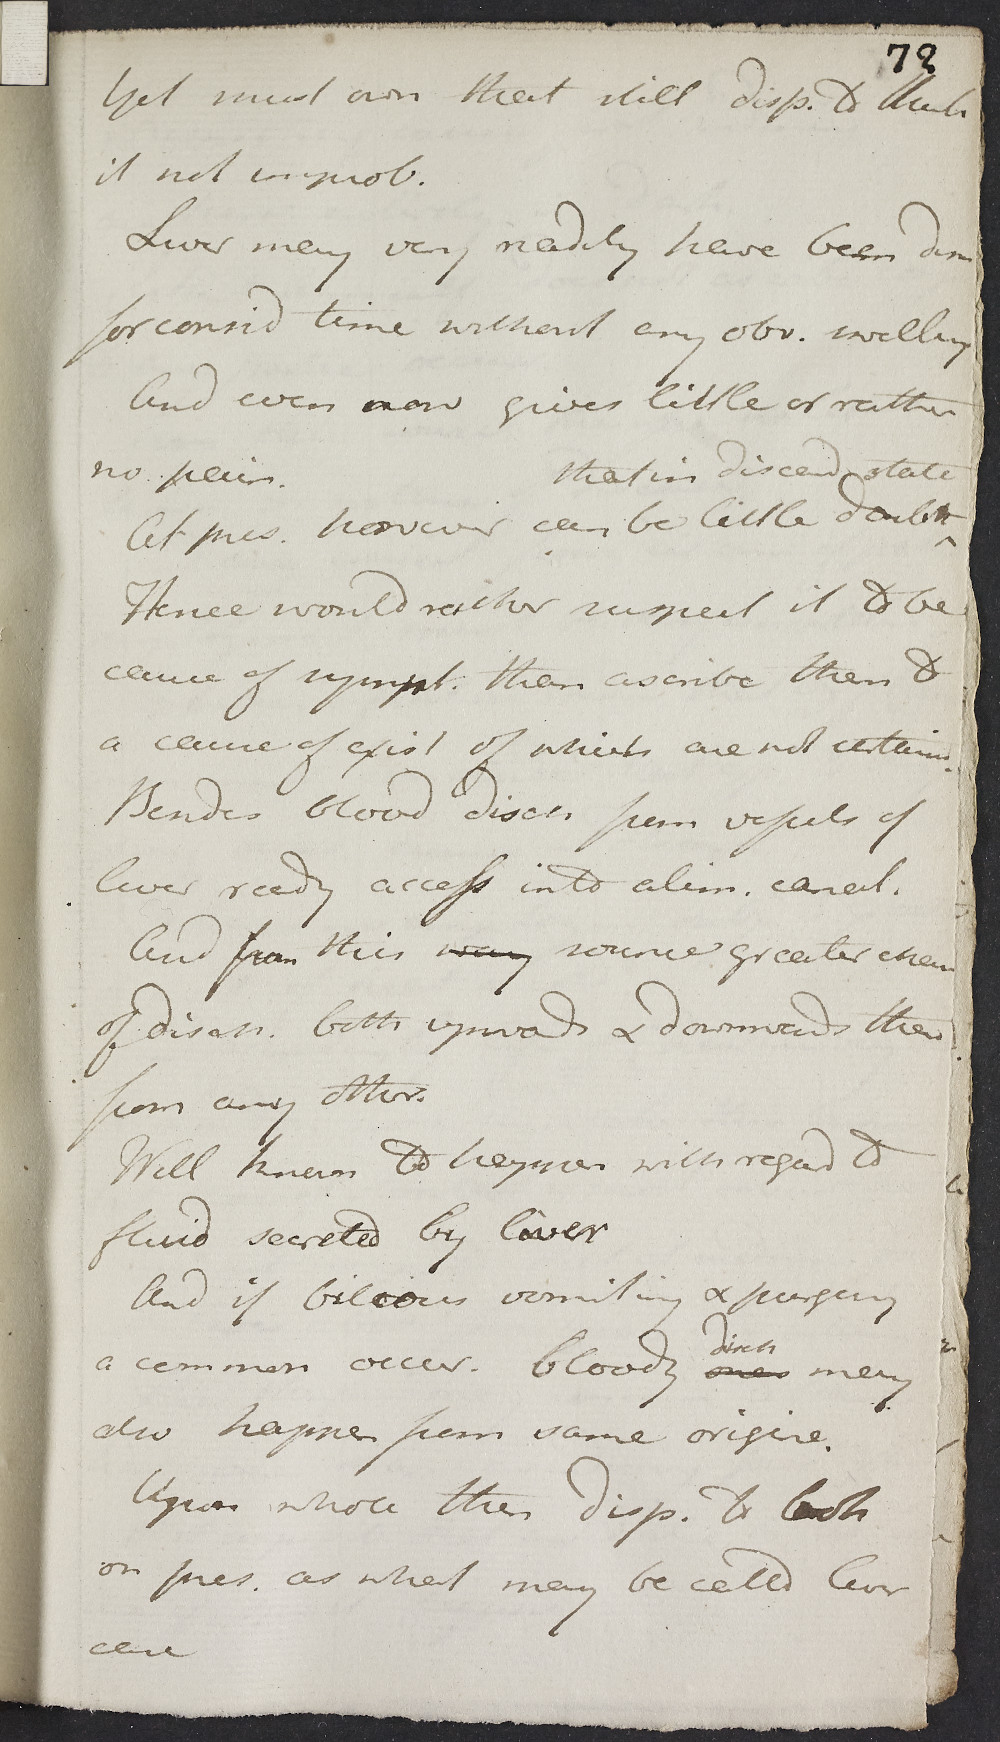 72
Yet must own that still disp. to think
it not improb.
Liver may very readily have been dis
for consid time without any obv. swelling
And even now gives little or rather
no pain.
that in diseasd state
At pres. however can be little doubt ^
Hence would rather suspect it to be
cause of sympt. than ascribe them to
a cause of exist of which are not certain.
Besides blood disch from vessels of
liver ready access into alim. canal.
And from this way source greater chan
of disch. both upwards & downwards than
from any other.
Well known to happen with regard to
fluid secreted by liver
And if bilious vomiting & purging
disch
a common occur. bloody ones may
also happen from same origine.
Upon whole then disp. to look
on pres. as what may be calld liver
case